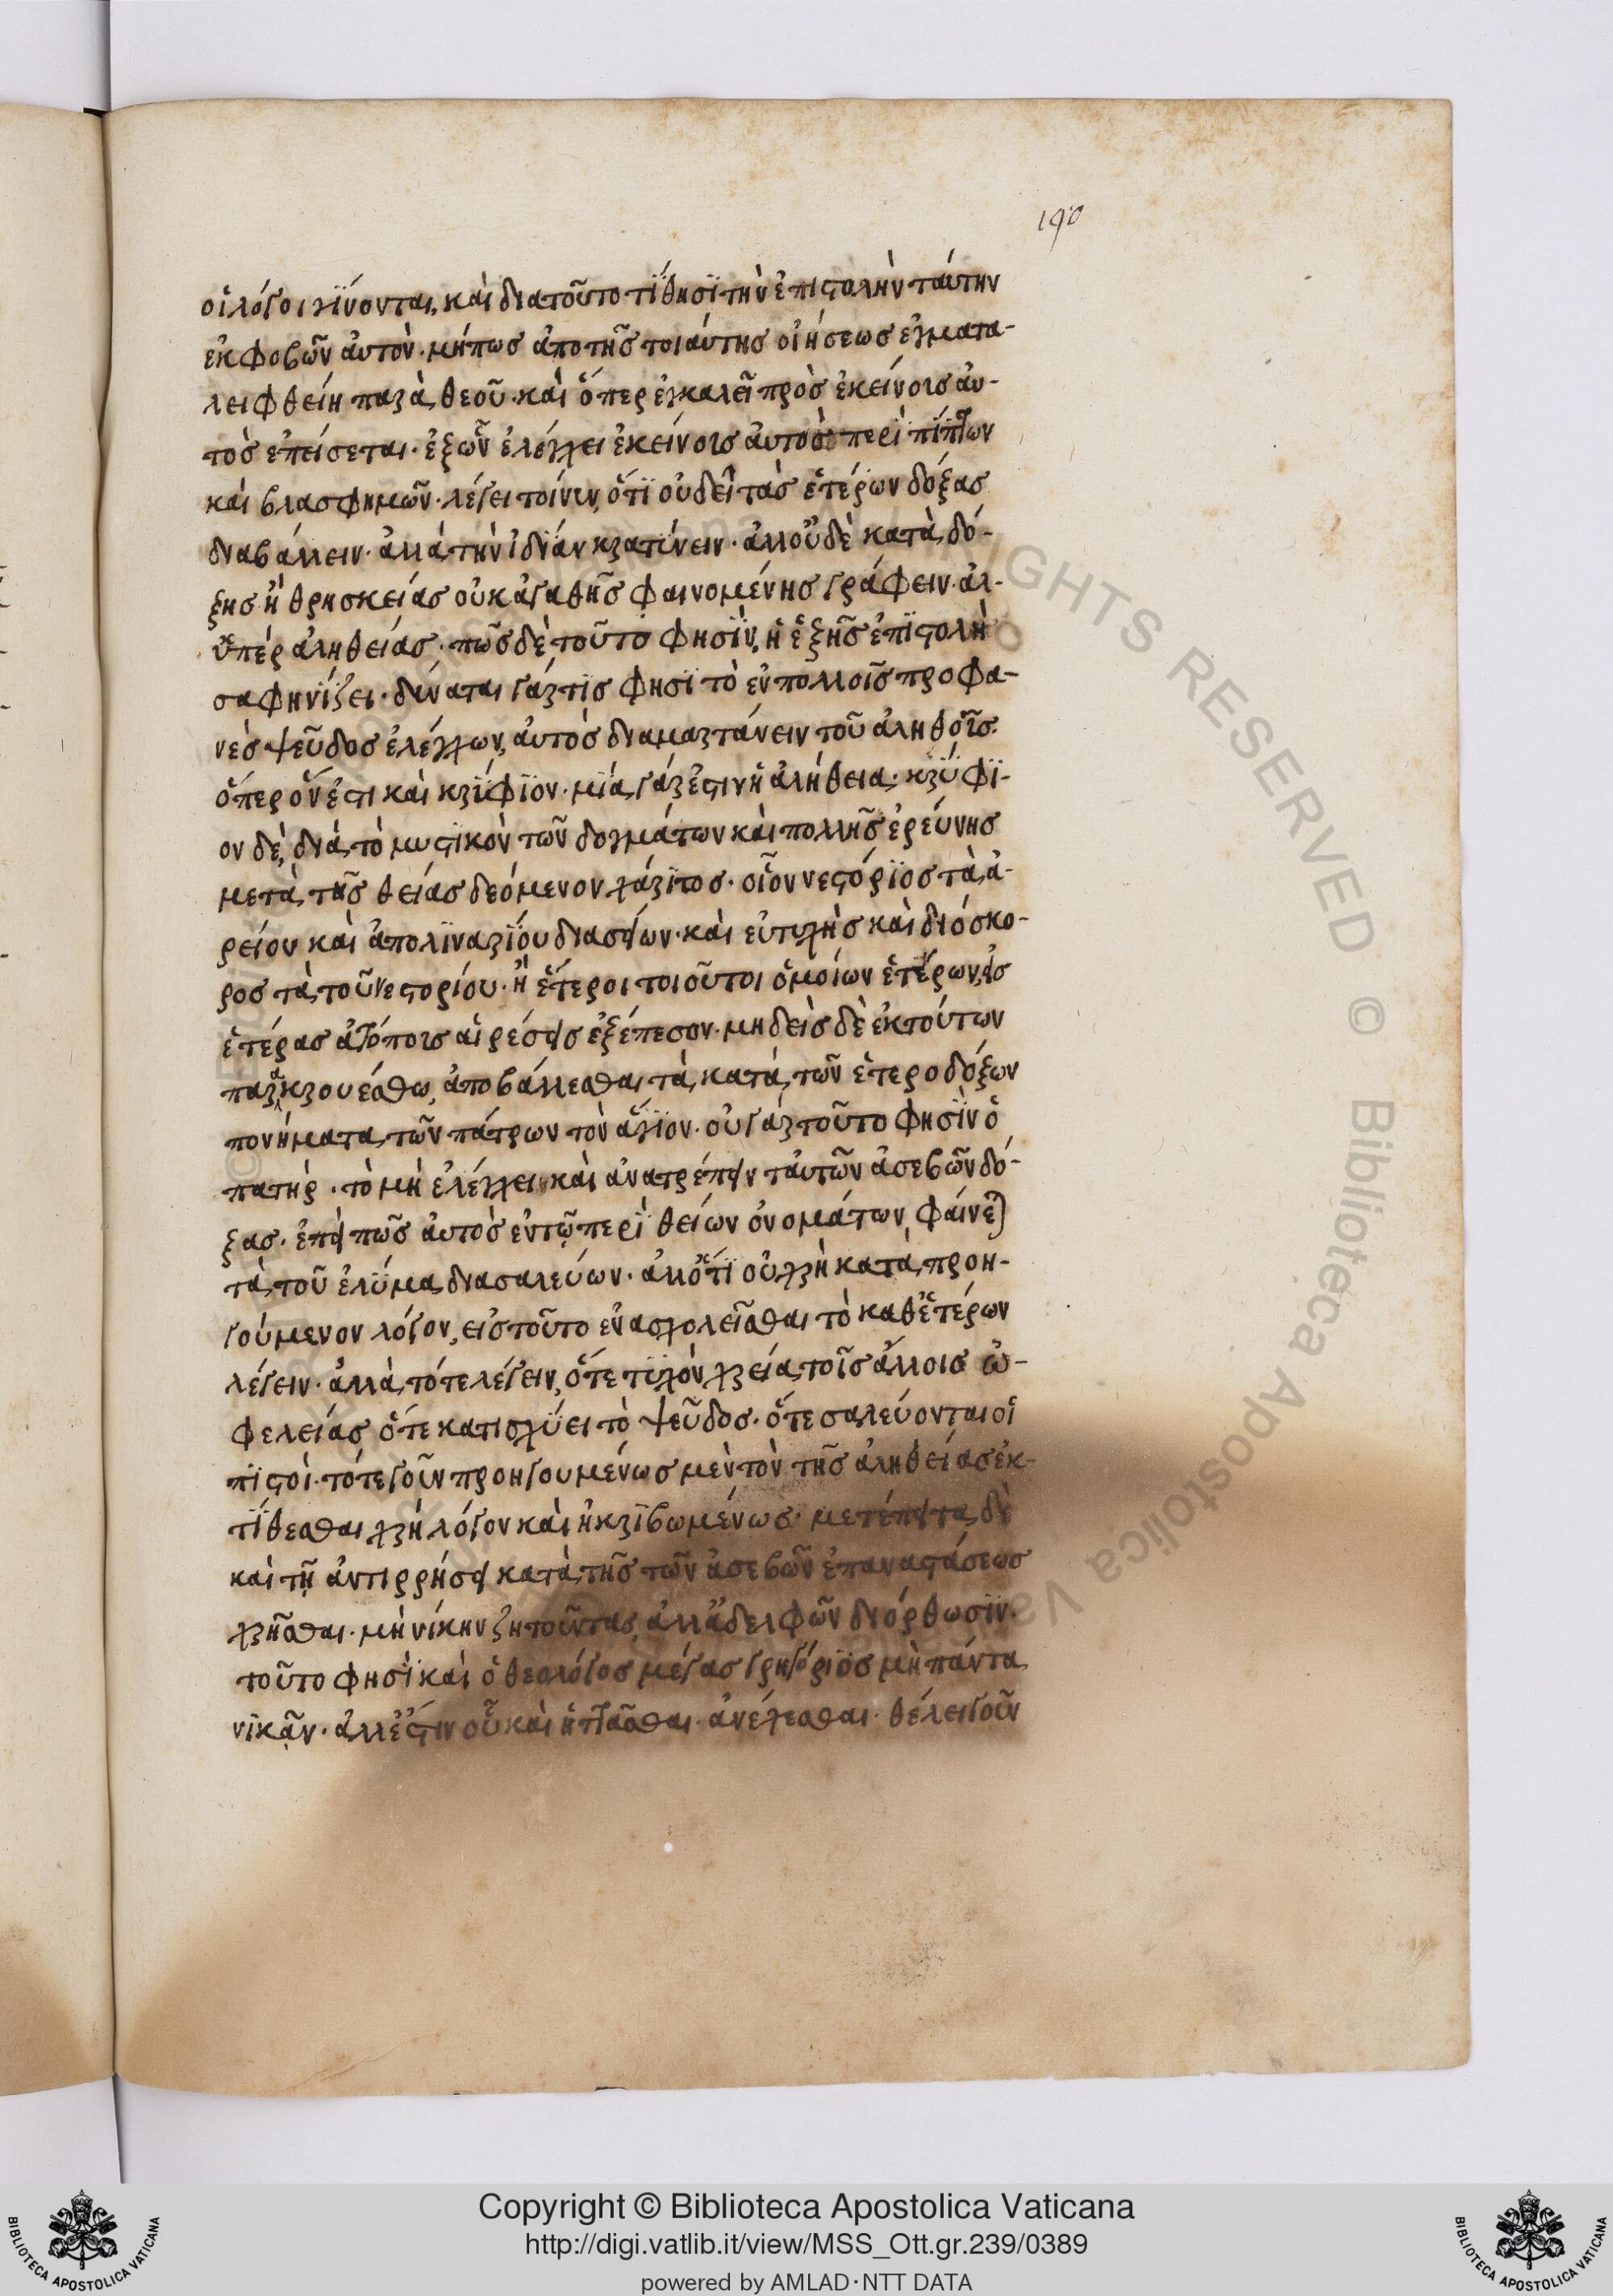 190
οἱ λόγοι γίνονται, καὶ διατοῦτο τίθησι τὴν ἐπιστολὴν ταύτην
ἐκφοβῶν αὐτὸν· μήπως ἀπὸ τῆς τοιαύτης οἰήσεως ἐγκατα-
λειφθείη παρὰ θεοῦ· καὶ ὅπερ ἐγκαλεῖ πρὸς ἐκείνοις αὐ-
τὸς ἐπείσεται· ἐξ ὧν ἐλέγχει ἐκείνοις αὐτὸς περιπίπτων
καὶ βλασφημῶν· λέγει τοίνυν, ὅτι οὐ δεῖ τὰς ἑτέρων δόξας
διαβάλλειν· ἀλλὰ τὴν ἰδίαν κρατύνειν· ἀλλ' οὐδὲ κατὰ δό-
ξης ἢ θρησκείας οὐκ ἀγαθῆς φαινομένης γράφειν· ἀλ-
λ' ὑπὲρ ἀληθείας· πῶς δὲ τοῦτο φησὶν, ἡ ἑξῆς ἐπιστολὴ
σαφηνίζει· δύναται γάρ τις φησὶ τὸ ἐν πολλοῖς προφα-
νὲς ψεῦδος ἐλέγχων, αὐτὸς διαμαρτάνειν τοῦ ἀληθοῦς·
ὅπερ ἕν ἐστι καὶ κρύφιον· μία γάρ ἐστιν ἡ ἀλήθεια· κρύφι-
ον δὲ, διὰ τὸ μυστικὸν τῶν δογμάτων καὶ πολλῆς ἐρεύνης
μετὰ τῆς θείας δεόμενον χάριτος· οἷον νεστόριος τὰ ἀ-
ρείου καὶ ἀπολιναρίου διασύρων· καὶ εὐτυχὴς καὶ διόσκο-
ρος τὰ τοῦ νεστορίου· ἢ ἕτεροι τοιοῦτοι ὁμοίων ἑτέρων, εἰς
ἑτέρας ἀτόποις αἱρέσεις ἐξέπεσον· μηδεὶς δὲ ἐκ τούτων
παρακρουέσθω, ἀποβάλλεσθαι τὰ κατὰ τῶν ἑτεροδόξων
πονήματα τῶν πάτρων τὸν ἅγιον· οὐ γὰρ τοῦτο φησὶν ὁ
πατὴρ· τὸ μὴ ἐλέγχειν καὶ ἀνατρέπειν τ' αὐτῶν ἀσεβῶν δό-
ξας· ἐπεὶ πῶς αὐτὸς ἐν τῷ περὶ θείων ὀνομάτων, φαίνεται
τὰ τοῦ ἐλύμα διασαλεύων· ἀλλ' ὅτι οὐ χρὴ κατὰ προη-
γούμενον λόγον, εἰς τοῦτο ἐνασχολεῖσθαι τὸ καθ' ἑτέρων
λέγειν· ἀλλὰ τότε λέγειν, ὅτε τυχὸν χρεία τοῖς ἄλλοις ὠ-
φελείας ὅτε κατισχύει τὸ ψεῦδος· ὅτε σαλεύονται οἱ
πιστοὶ· τότε γοῦν προηγουμένως μὲν τὸν τῆς ἀληθείας ἐκ-
τίθεσθαι χρὴ λόγον καὶ ἠκριβωμένως· μετέπειτα δὲ
καὶ τῇ ἀντιρρήσει κατὰ τῆς τῶν ἀσεβῶν ἐπαναστάσεως
χρῆσθαι· μὴ νίκην ζητοῦντας, ἀλλ' ἀδελφῶν διόρθωσιν·
τοῦτο φησὶ καὶ ὁ θεολόγος μέγας γρηγόριος μὴ πάντα
νικᾶν· ἀλλ' ἔστιν οὗ καὶ ἡττᾶσθαι ἀνέχεσθαι· θέλει γοῦν
Copyright © Biblioteca Apostolica Vaticana
http://digi.vatlib.it/view/MSS_Ott.gr.239/0389
powered by AMLAD·NTT DATA